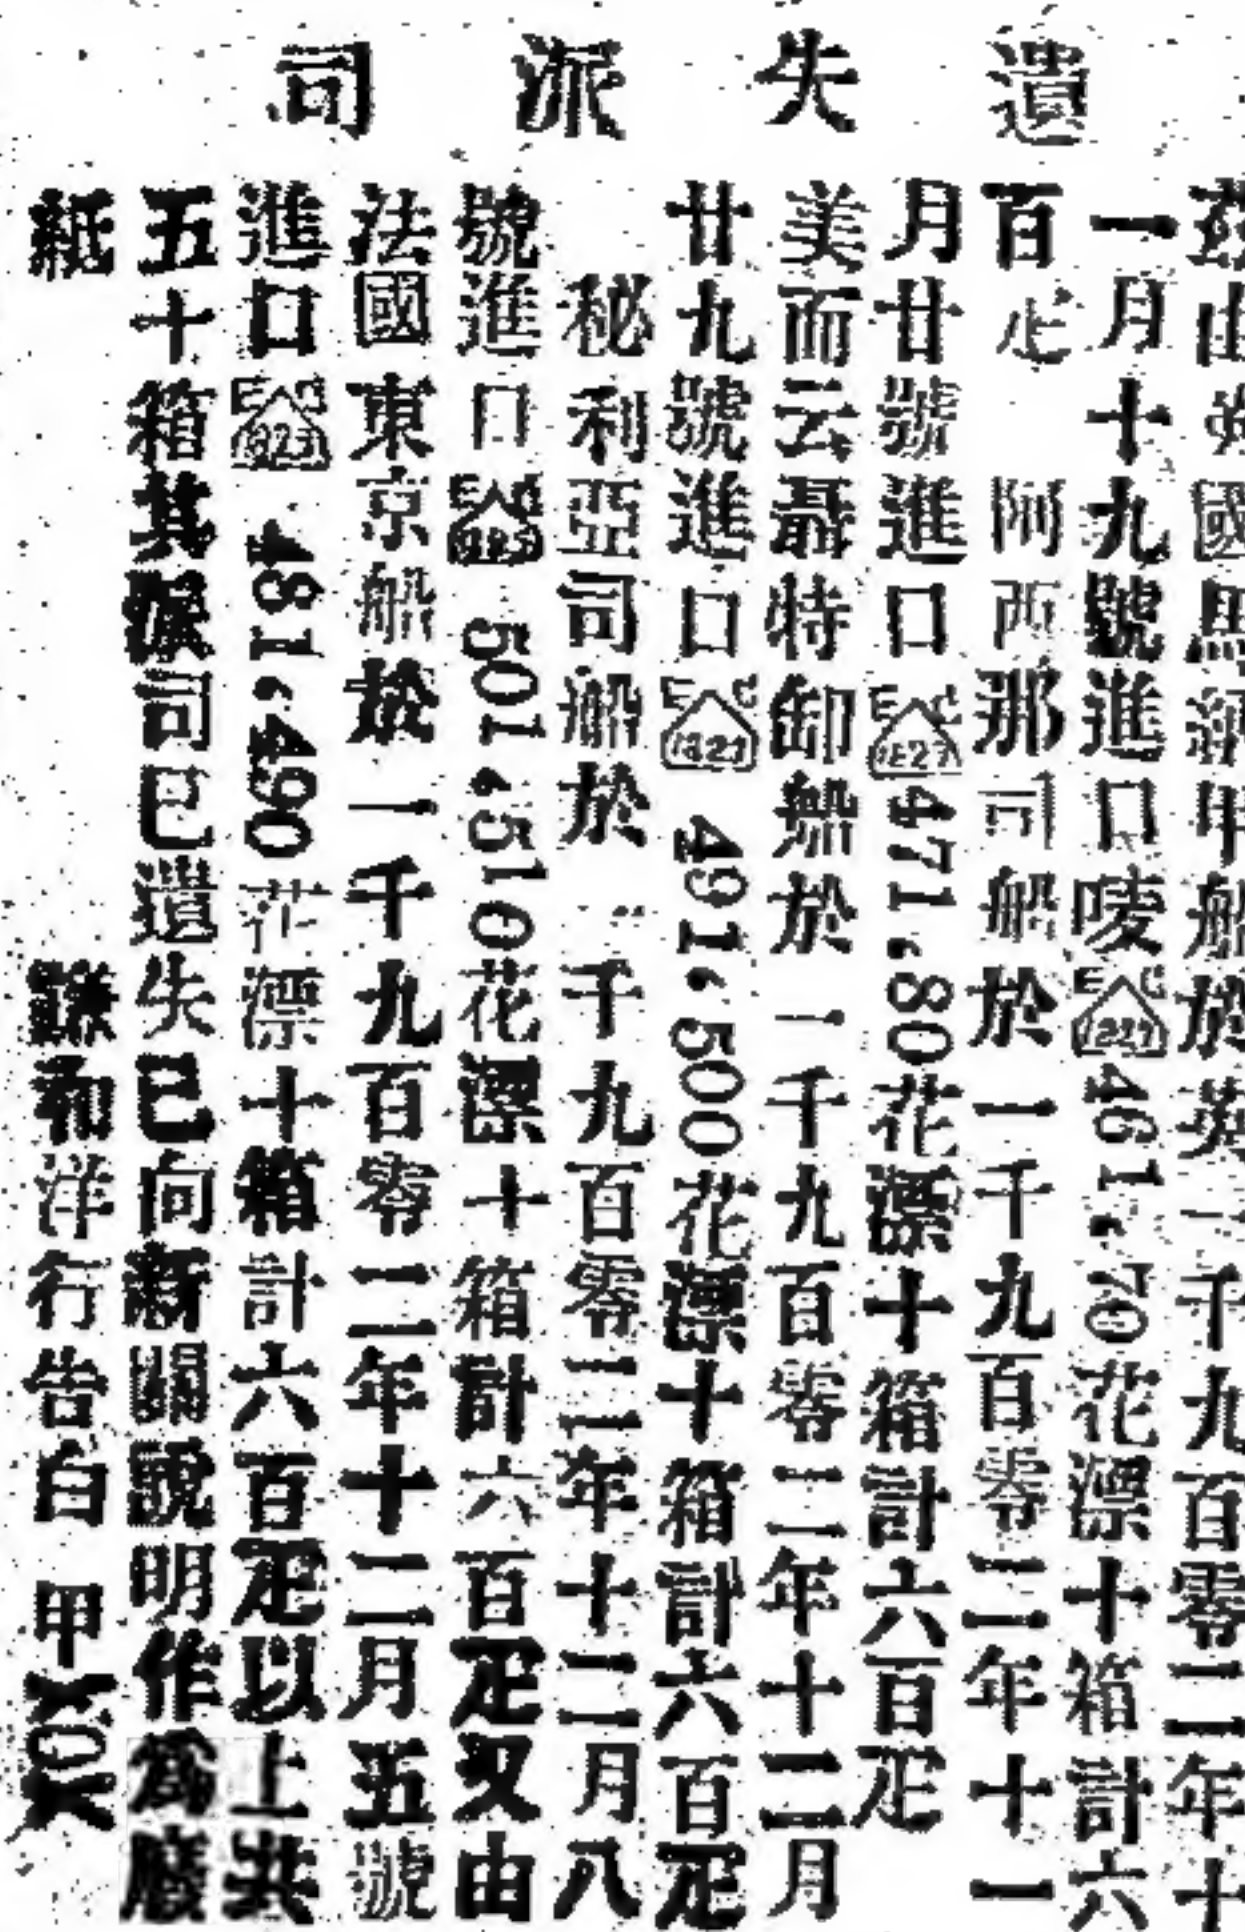 遺失派司
茲由英國馬渊甲船於英一千九百零二年十
一月十九號進口嘜EC1227 461.70花漂十箱計六
百疋 阿西那司船於一千九百零二年十一
月廿號進口EC1227 471.80花漂十箱計六百疋
美而云聶特卸船於一千九百零二年十二月
廿九號進口EC1227 491.500花漂十箱計六百疋
秘利亞司船於 千九百零二年十二月八
號進口EC 501.510花漂十箱計六百疋又由
法國東京船於一千九百零二年十二月五號
進口EC 481.490花漂十箱計六百疋以上共
五十箱其派司已遺失已向新關說明作爲廢
紙 和洋行告白 甲